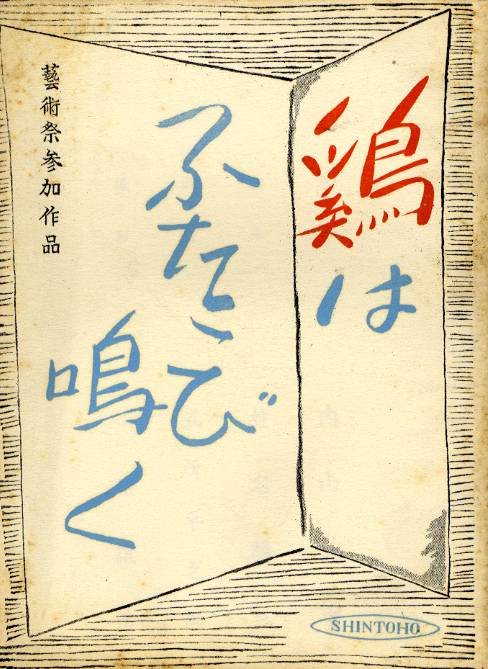 鷄は
ふたたび
鳴く
藝術祭参加作品
SHINTOHO